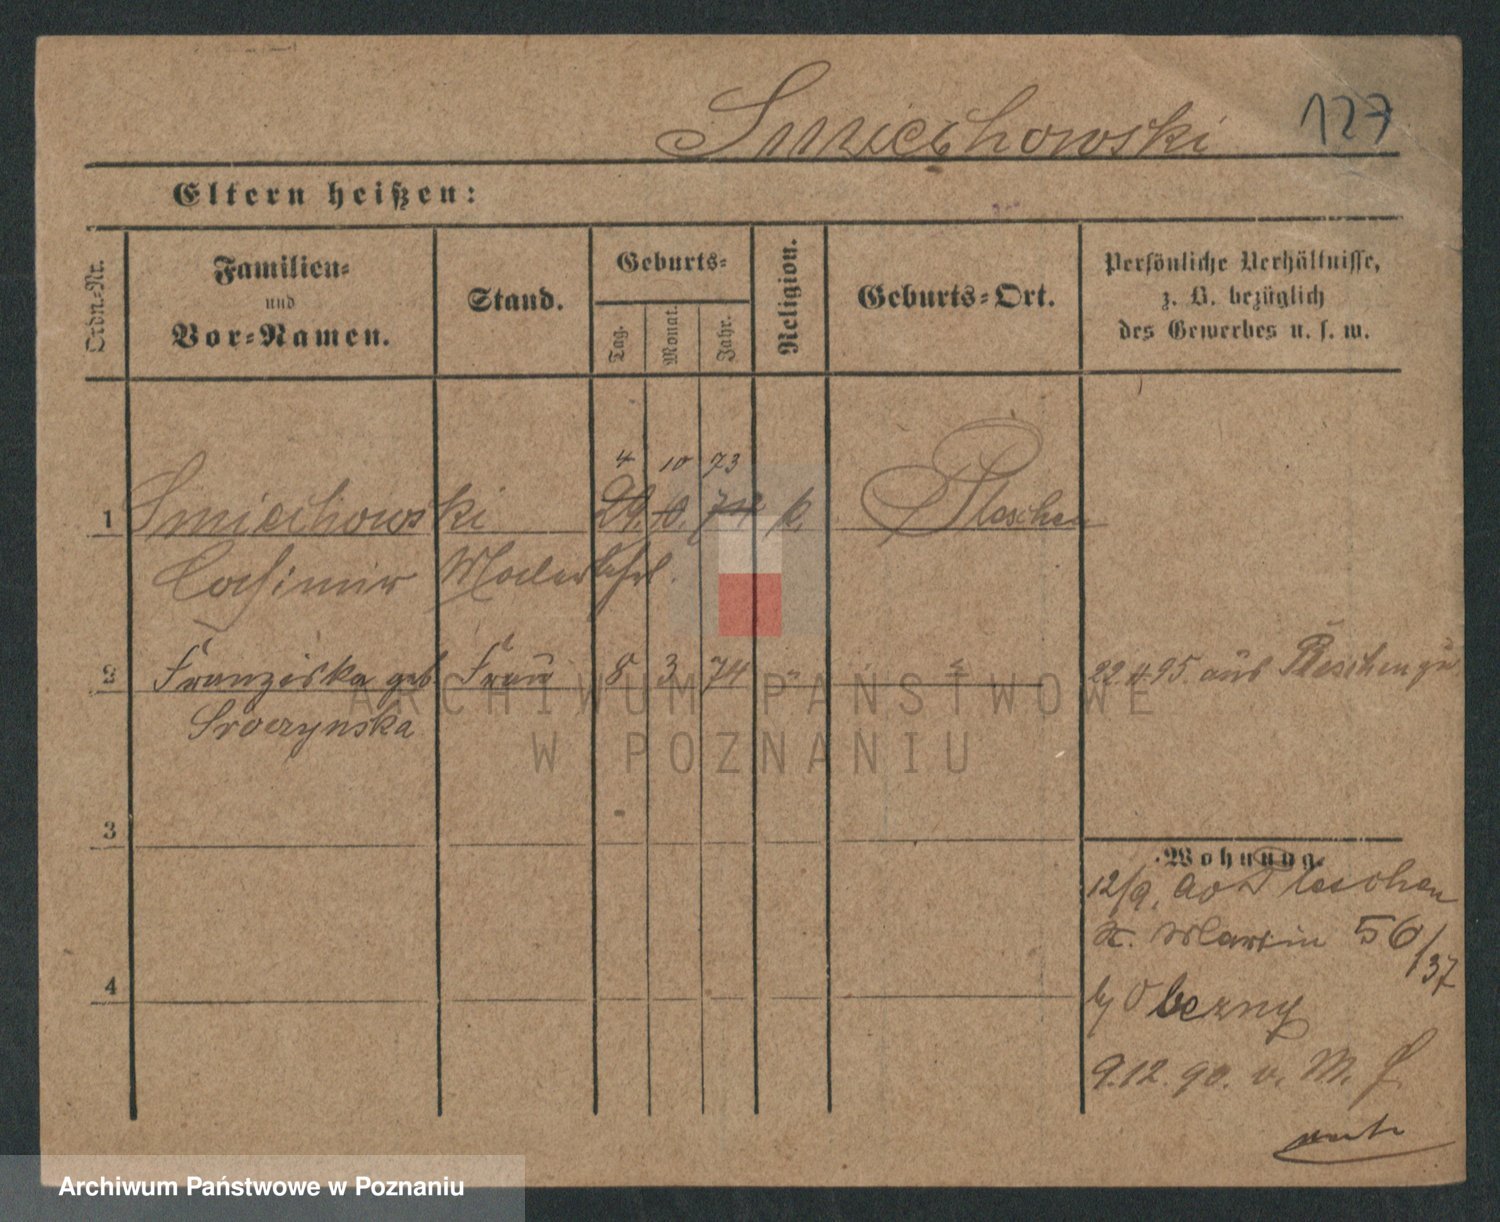 Smiechowski 127
Eltern heißen:
Ordn.-Nr.
Familien-
und
Vor-Namen.
Stand.
Geburts-
Tag.
Monat.
Jahr.
Religion.
Geburts-Ort.
Persönliche Verhältnisse,
z. B. bezüglich
des Gewerbes u. s. w.
4 10 73
1 Smiechowski 29. 10. 72 k. Pleschen
Casimir Malerlehrl.
2 Franziska geb Frau 8 3 74 " 22.4.95. aus Pleschen zu
Sroczynska
3
Wohnung.
12/9. 90 Pleschen
St. Martin 56/37
b/ Oberzny
4
9.12.90. v. M. f.
ARCHIWUM PAŃSTWOWE
W POZNANIU
Archiwum Państwowe w Poznaniu